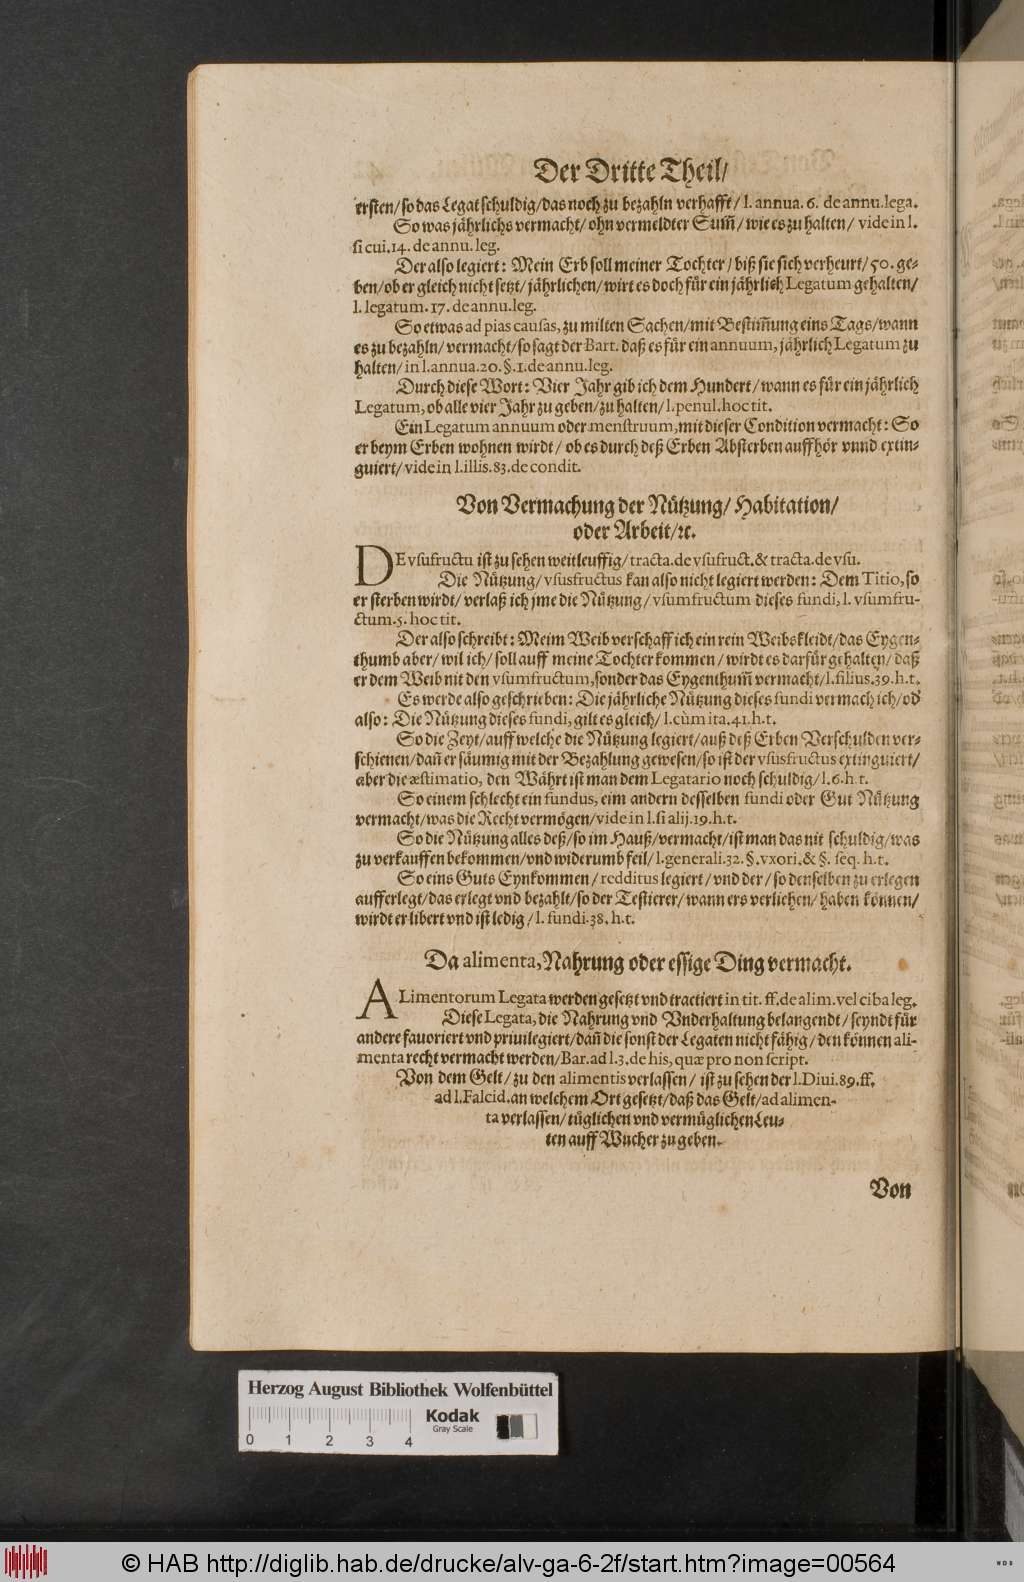 Der Dritte Theil/
ersten/ so das Legat schuldig/ das noch zu bezahln verhafft/ l. annua. 6. de annu. lega.
So was jährlichs vermacht/ ohn vermeldter Sum̃/ wie es zu halten/ vide in l.
si cui. 14. de annu. leg.
Der also legiert: Mein Erb soll meiner Tochter/ biß sie sich verheurt/ 50. ge-
ben/ ob er gleich nicht setzt/ jährlichen/ wirt es doch für ein jährlich Legatum gehalten/
l. legatum. 17. de annu. leg.
So etwas ad pias causas, zu milten Sachen/ mit Bestim̃ung eins Tags/ wann
es zu bezahln/ vermacht/ so sagt der Bart. daß es für ein annuum, jährlich Legatum zu
halten/ in l. annua. 20. §. 1. de annu. leg.
Durch diese Wort: Vier Jahr gib ich dem Hundert/ wann es für ein jährlich
Legatum, ob alle vier Jahr zu geben/ zu halten/ l. penul. hoc tit.
Ein Legatum annuum oder menstruum, mit dieser Condition vermacht: So
er beym Erben wohnen wirdt/ ob es durch deß Erben Absterben auffhör vnnd extin-
guiert/ vide in l. illis. 83. de condit.
Von Vermachung der Nützung/ Habitation/
oder Arbeit/ ꝛc.
DE vsufructu ist zu sehen weitleuffig/ tracta. de vsufruct. & tracta. de vsu.
Die Nützung/ vsusfructus kan also nicht legiert werden: Dem Titio, so
er sterben wirdt/ verlaß ich jme die Nützung/ vsumfructum dieses fundi, l. vsumfru-
ctum. 5. hoc tit.
Der also schreibt: Meim Weib verschaff ich ein rein Weibskleidt/ das Eygen-
thumb aber/ wil ich/ soll auff meine Tochter kommen/ wirdt es darfür gehalten/ daß
er dem Weib nit den vsumfructum, sonder das Eygenthum̃ vermacht/ l. filius. 39. h. t.
Es werde also geschrieben: Die jährliche Nützung dieses fundi vermach ich/ oď
also: Die Nützung dieses fundi, gilt es gleich/ l. cùm ita. 41. h. t.
So die Zeyt/ auff welche die Nützung legiert/ auß deß Erben Verschulden ver-
schienen/ dañ er säumig mit der Bezahlung gewesen/ so ist der vsusfructus extinguiert/
aber die æstimatio, den Währt ist man dem Legatario noch schuldig/ l. 6. h. t.
So einem schlecht ein fundus, eim andern desselben fundi oder Gut Nützung
vermacht/ was die Recht vermögen/ vide in l. si alij. 19. h. t.
So die Nützung alles deß/ so im Hauß/ vermacht/ ist man das nit schuldig/ was
zu verkauffen bekommen/ vnd widerumb feil/ l. generali. 32. §. vxori. & §. seq. h. t.
So eins Guts Eynkommen/ redditus legiert/ vnd der/ so denselben zu erlegen
aufferlegt/ das erlegt vnd bezahlt/ so der Testierer/ wann ers verliehen/ haben können/
wirdt er libert vnd ist ledig/ l. fundi. 38. h. t.
Da alimenta, Nahrung oder essige Ding vermacht.
ALimentorum Legata werden gesetzt vnd tractiert in tit. ff. de alim. vel ciba leg.
Diese Legata, die Nahrung vnd Vnderhaltung belangendt/ seyndt für
andere fauoriert vnd privilegiert/ dañ die sonst der Legaten nicht fähig/ den können ali-
menta recht vermacht werden/ Bar. ad l. 3. de his, quæ pro non script.
Von dem Gelt/ zu den alimentis verlassen/ ist zu sehen der l. Diui. 89. ff.
ad l. Falcid. an welchem Ort gesetzt/ daß das Gelt/ ad alimen-
ta verlassen/ tüglichen vnd vermüglichen Leu-
ten auff Wucher zu geben.
Von
Herzog August Bibliothek Wolfenbüttel
Kodak
Gray Scale
0 1 2 3 4
© HAB http://diglib.hab.de/drucke/alv-ga-6-2f/start.htm?image=00564
WDB